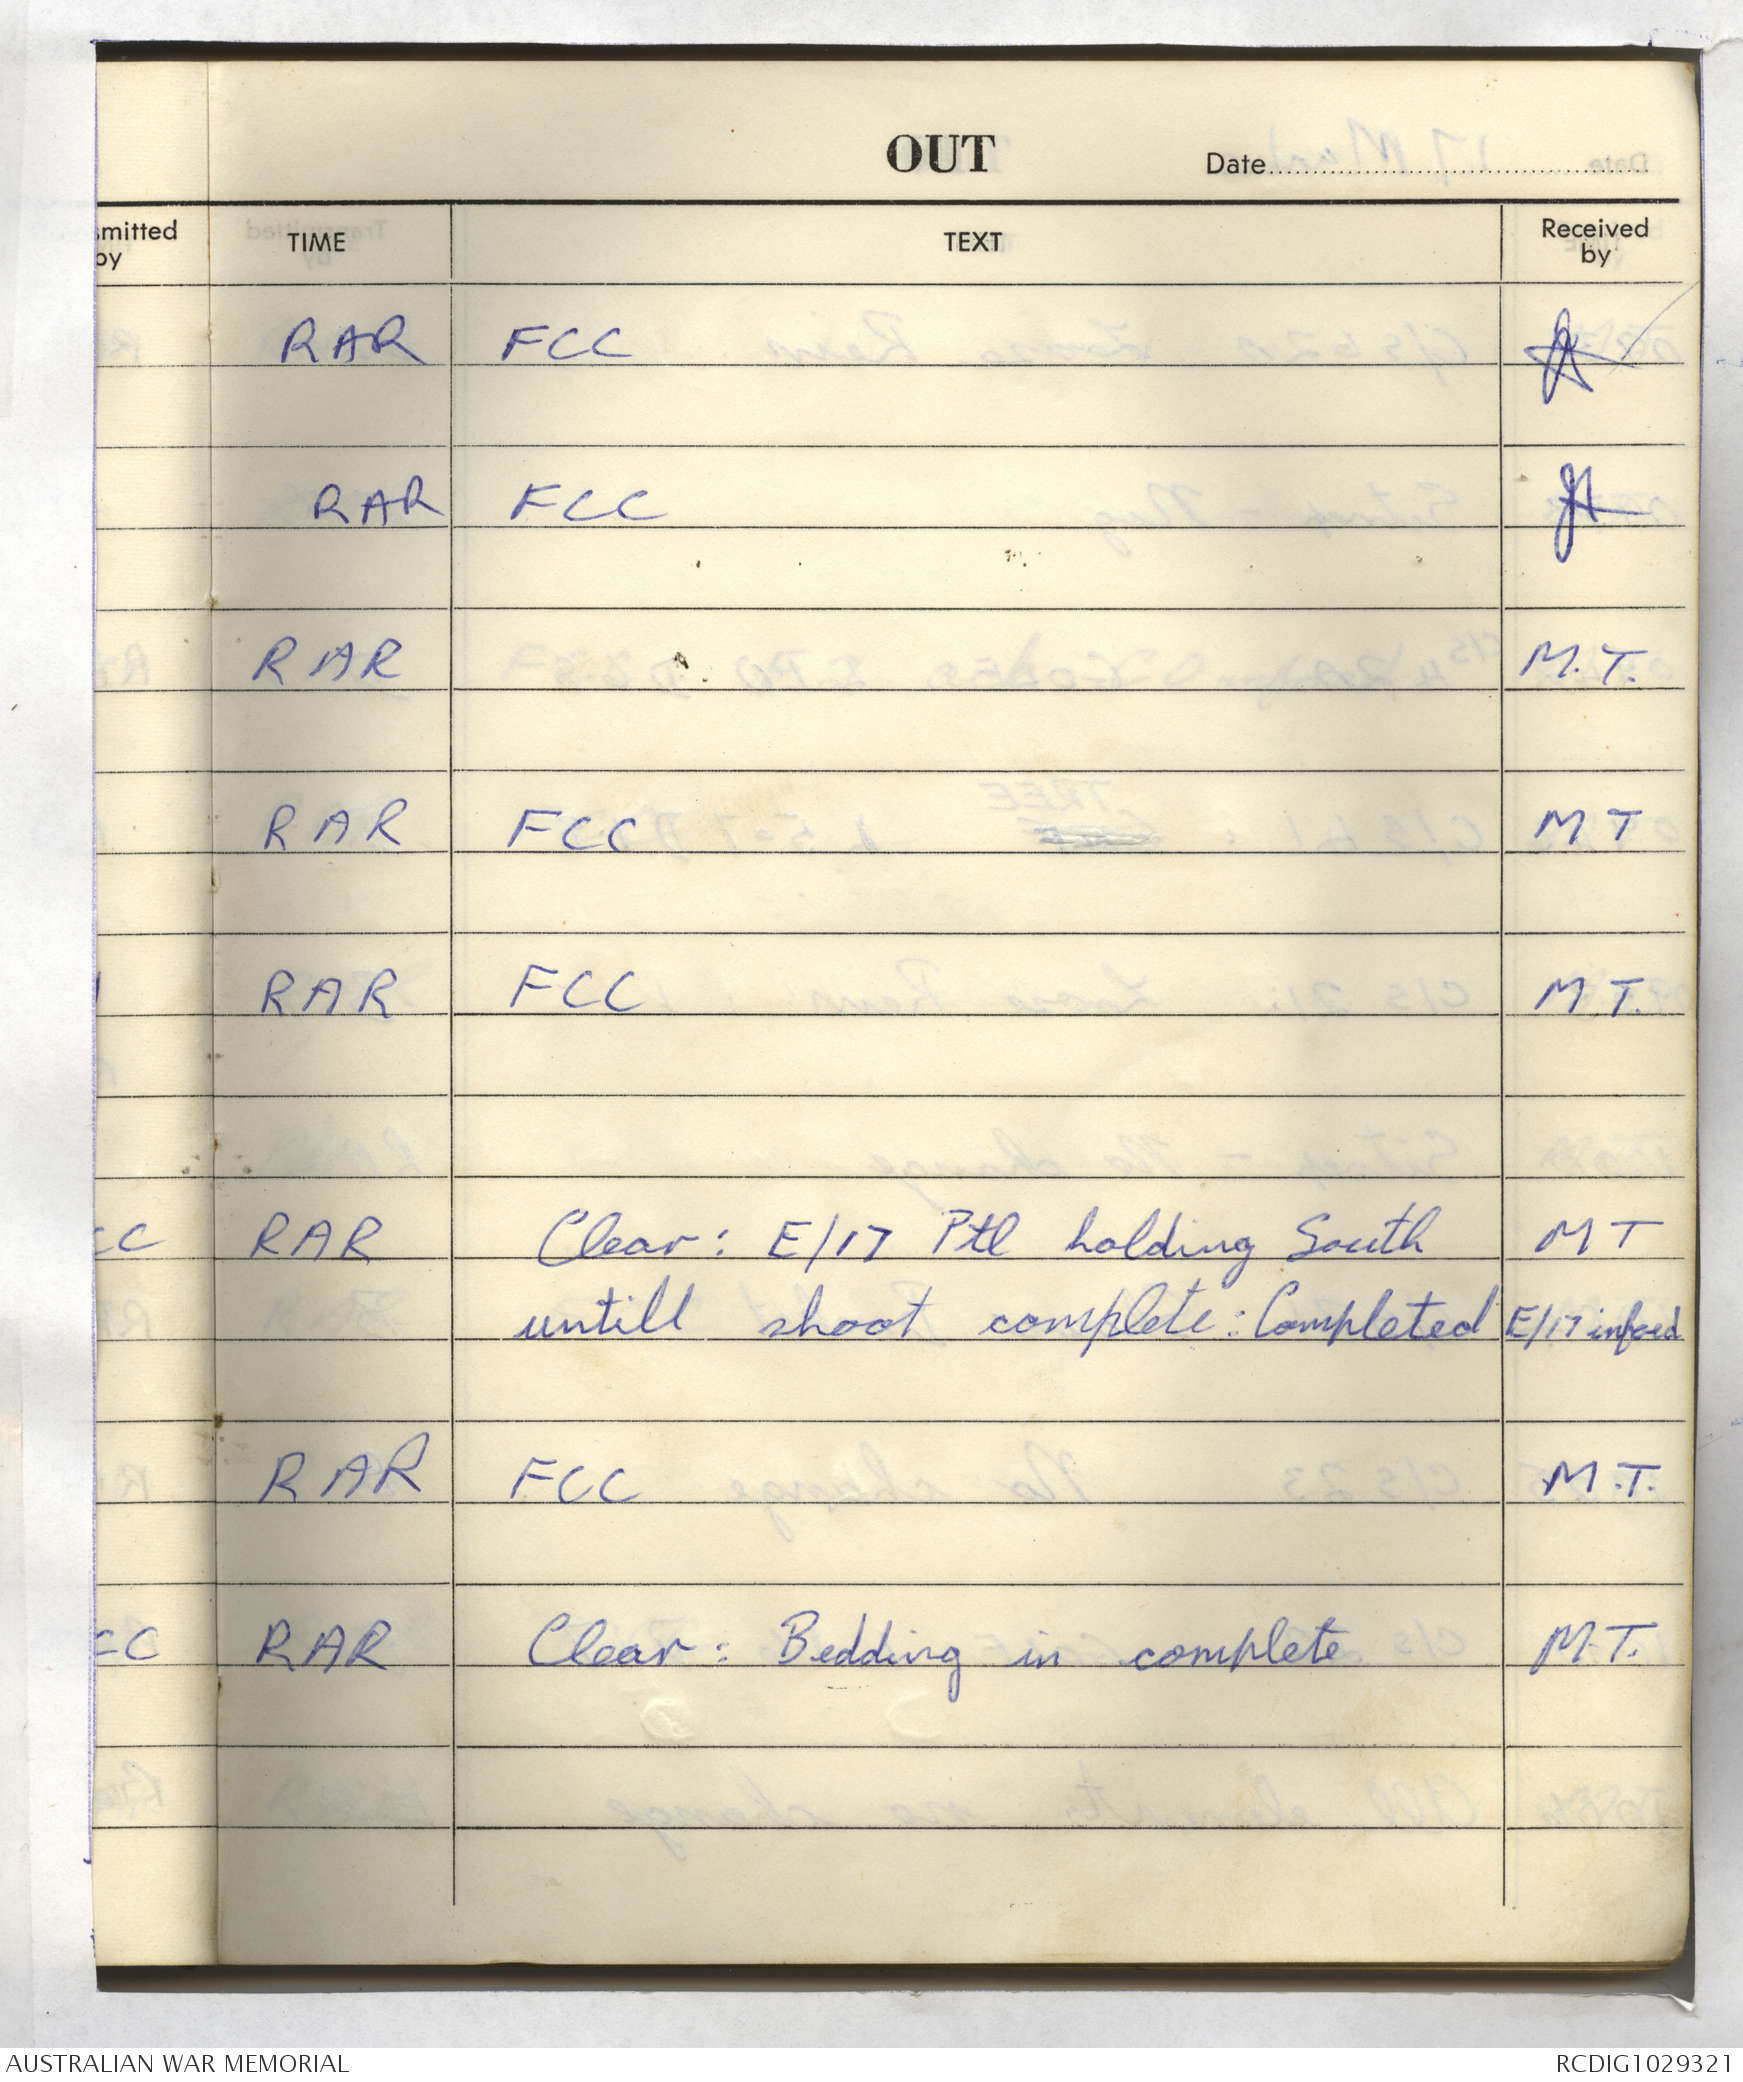 OUT
Date
smitted by TIME TEXT Received by
RAR FCC
RAR FCC
RAR M.T.
RAR FCC M T
RAR FCC M.T.
CC RAR Clear: E/17 Ptl holding South M T
untill shoot complete: Completed E/17
RAR FCC M.T.
CC RAR Clear: Bedding in complete M.T.
AUSTRALIAN WAR MEMORIAL RCDIG1029321